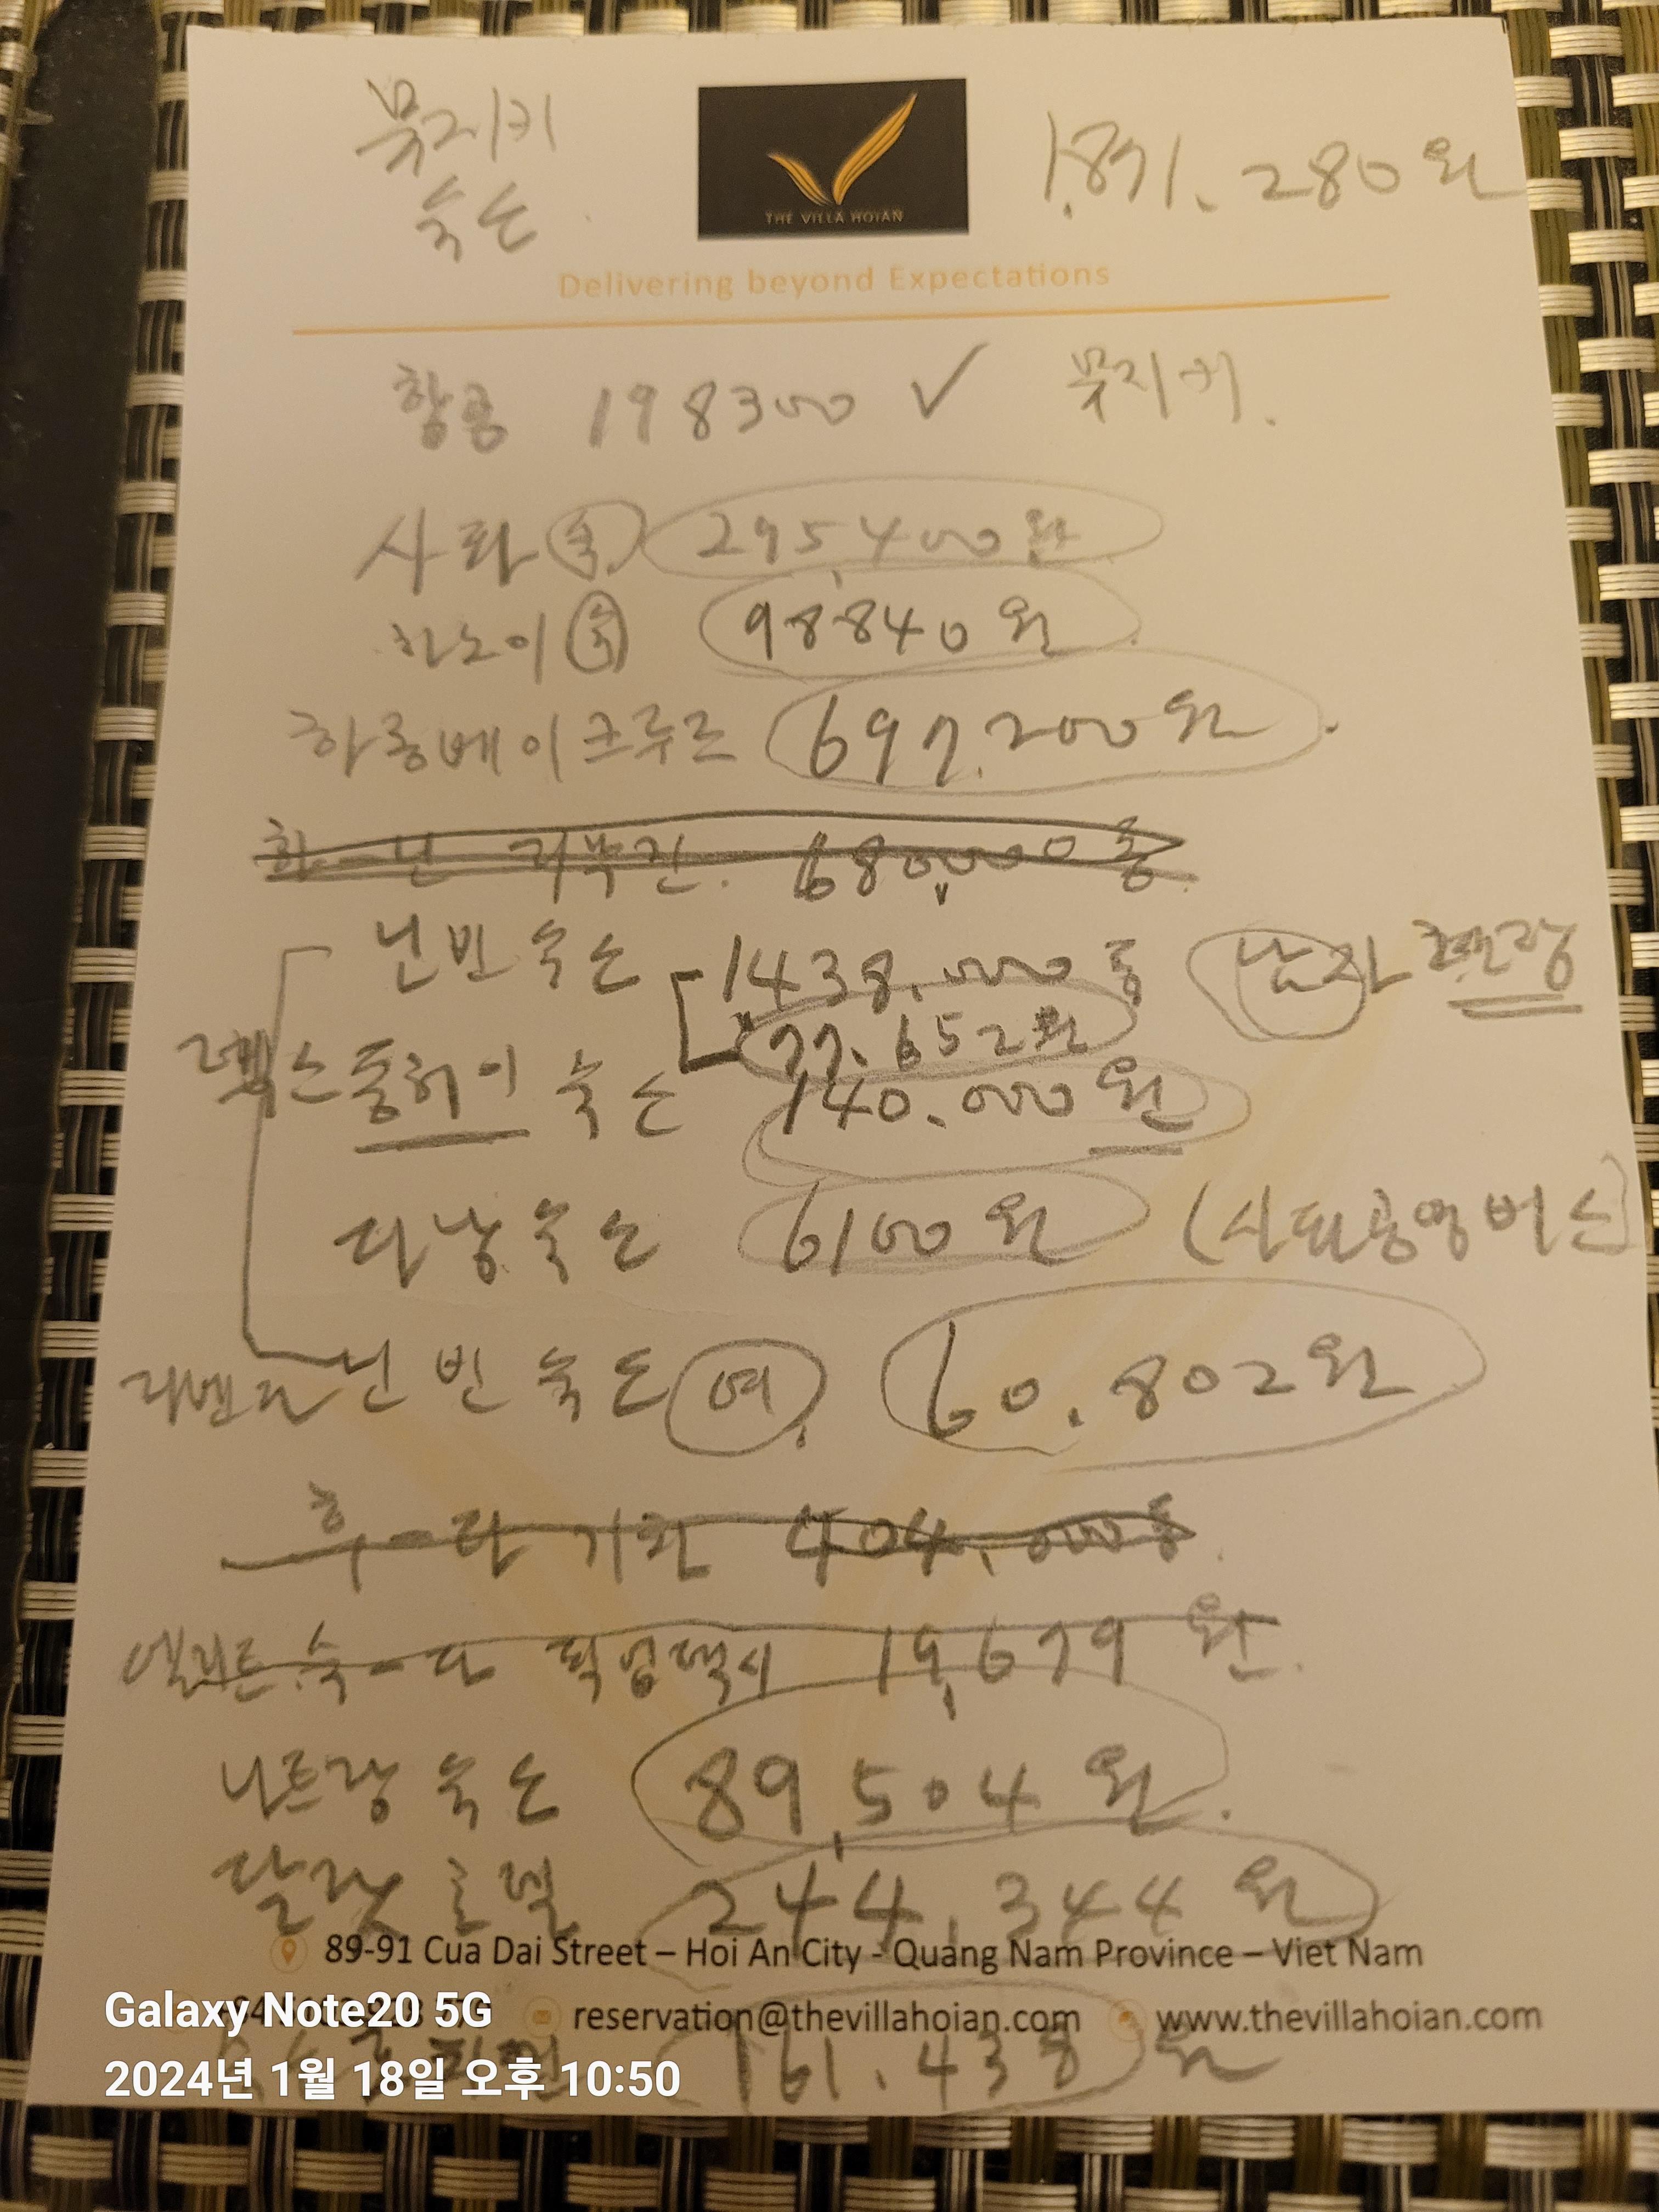 뭉지키
숙소
THE VILLA HOIAN
1.871.280원
Delivering beyond Expectations
항공 198300 ✓ 뭉지키.
사파 숙. 295,400원
하노이 숙 98840원.
하롱베이크루즈 697.200원.
하-닌 리무진. 680000동
닌빈숙소 1438.000동 남자 현장
77.652원
렉스퐁허이 숙소 140.000원
다낭숙소 6100원 (사파공영버스)
닌빈숙소 여. 60.802원
후-다 기차 404.000동.
숙-다 픽업택시 19,679원.
나트랑 숙소 89,504원.
달랏호텔 244,344원
89-91 Cua Dai Street – Hoi An City - Quang Nam Province – Viet Nam
reservation@thevillahoian.com www.thevillahoian.com
161.438원
Galaxy Note20 5G
2024년 1월 18일 오후 10:50